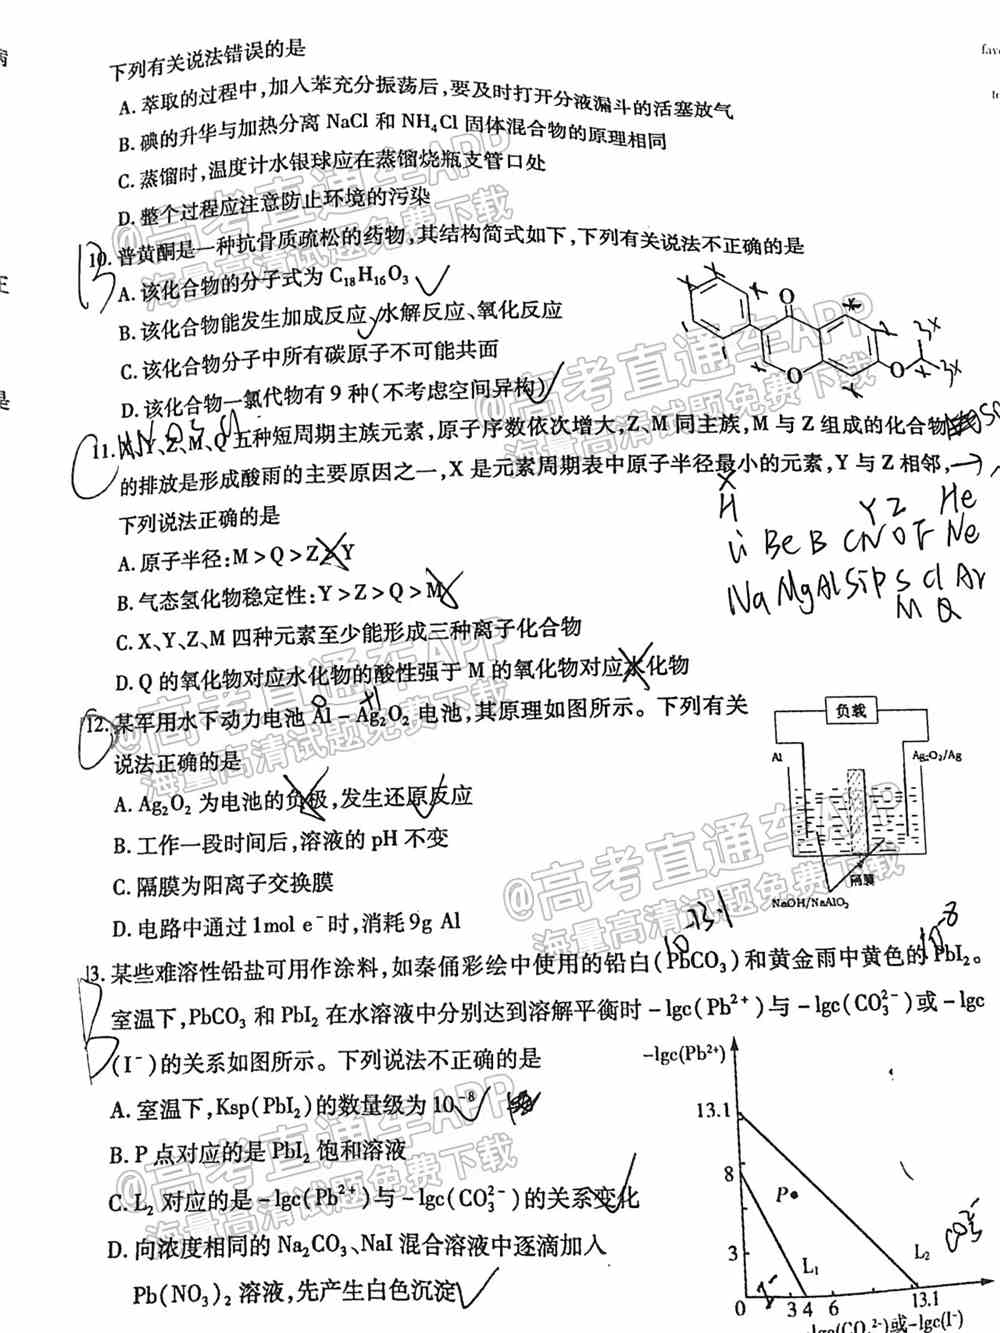 下列有关说法错误的是
A. 萃取的过程中,加入苯充分振荡后,要及时打开分液漏斗的活塞放气
B. 碘的升华与加热分离 NaCl 和 NH₄Cl 固体混合物的原理相同
C. 蒸馏时,温度计水银球应在蒸馏烧瓶支管口处
D. 整个过程应注意防止环境的污染
10. 普黄酮是一种抗骨质疏松的药物,其结构简式如下,下列有关说法不正确的是
A. 该化合物的分子式为 C₁₈H₁₆O₃
B. 该化合物能发生加成反应、水解反应、氧化反应
C. 该化合物分子中所有碳原子不可能共面
D. 该化合物一氯代物有 9 种(不考虑空间异构)
O
O
O
11. X、Y、Z、M、Q 五种短周期主族元素,原子序数依次增大,Z、M 同主族,M 与 Z 组成的化合物
的排放是形成酸雨的主要原因之一,X 是元素周期表中原子半径最小的元素,Y 与 Z 相邻,
下列说法正确的是
A. 原子半径:M > Q > Z > Y
B. 气态氢化物稳定性:Y > Z > Q > M
C. X、Y、Z、M 四种元素至少能形成三种离子化合物
D. Q 的氧化物对应水化物的酸性强于 M 的氧化物对应水化物
X
H
Y Z He
Li Be B C N O F Ne
Na Mg Al Si P S Cl Ar
M Q
12. 某军用水下动力电池 Al – Ag₂O₂ 电池,其原理如图所示。下列有关
说法正确的是
A. Ag₂O₂ 为电池的负极,发生还原反应
B. 工作一段时间后,溶液的 pH 不变
C. 隔膜为阳离子交换膜
D. 电路中通过 1mol e⁻ 时,消耗 9g Al
负载
Al
Ag₂O₂/Ag
隔膜
NaOH/NaAlO₂
10⁻¹³·¹
10⁻⁸
13. 某些难溶性铅盐可用作涂料,如秦俑彩绘中使用的铅白(PbCO₃)和黄金雨中黄色的 PbI₂。
室温下,PbCO₃ 和 PbI₂ 在水溶液中分别达到溶解平衡时 –lgc(Pb²⁺)与 –lgc(CO₃²⁻)或 –lgc
(I⁻)的关系如图所示。下列说法不正确的是
A. 室温下,Ksp(PbI₂)的数量级为 10⁻⁸
B. P 点对应的是 PbI₂ 饱和溶液
C. L₂ 对应的是 –lgc(Pb²⁺)与 –lgc(CO₃²⁻)的关系变化
D. 向浓度相同的 Na₂CO₃、NaI 混合溶液中逐滴加入
Pb(NO₃)₂ 溶液,先产生白色沉淀
–lgc(Pb²⁺)
13.1
8
P
3
L₁
L₂
CO₃²⁻
I⁻
0
3 4 6
13.1
–lgc(CO₃²⁻)或–lgc(I⁻)
@高考直通车APP
海量高清试题免费下载
@高考直通车APP
海量高清试题免费下载
@高考直通车APP
海量高清试题免费下载
@高考直通车APP
海量高清试题免费下载
@高考直通车APP
海量高清试题免费下载